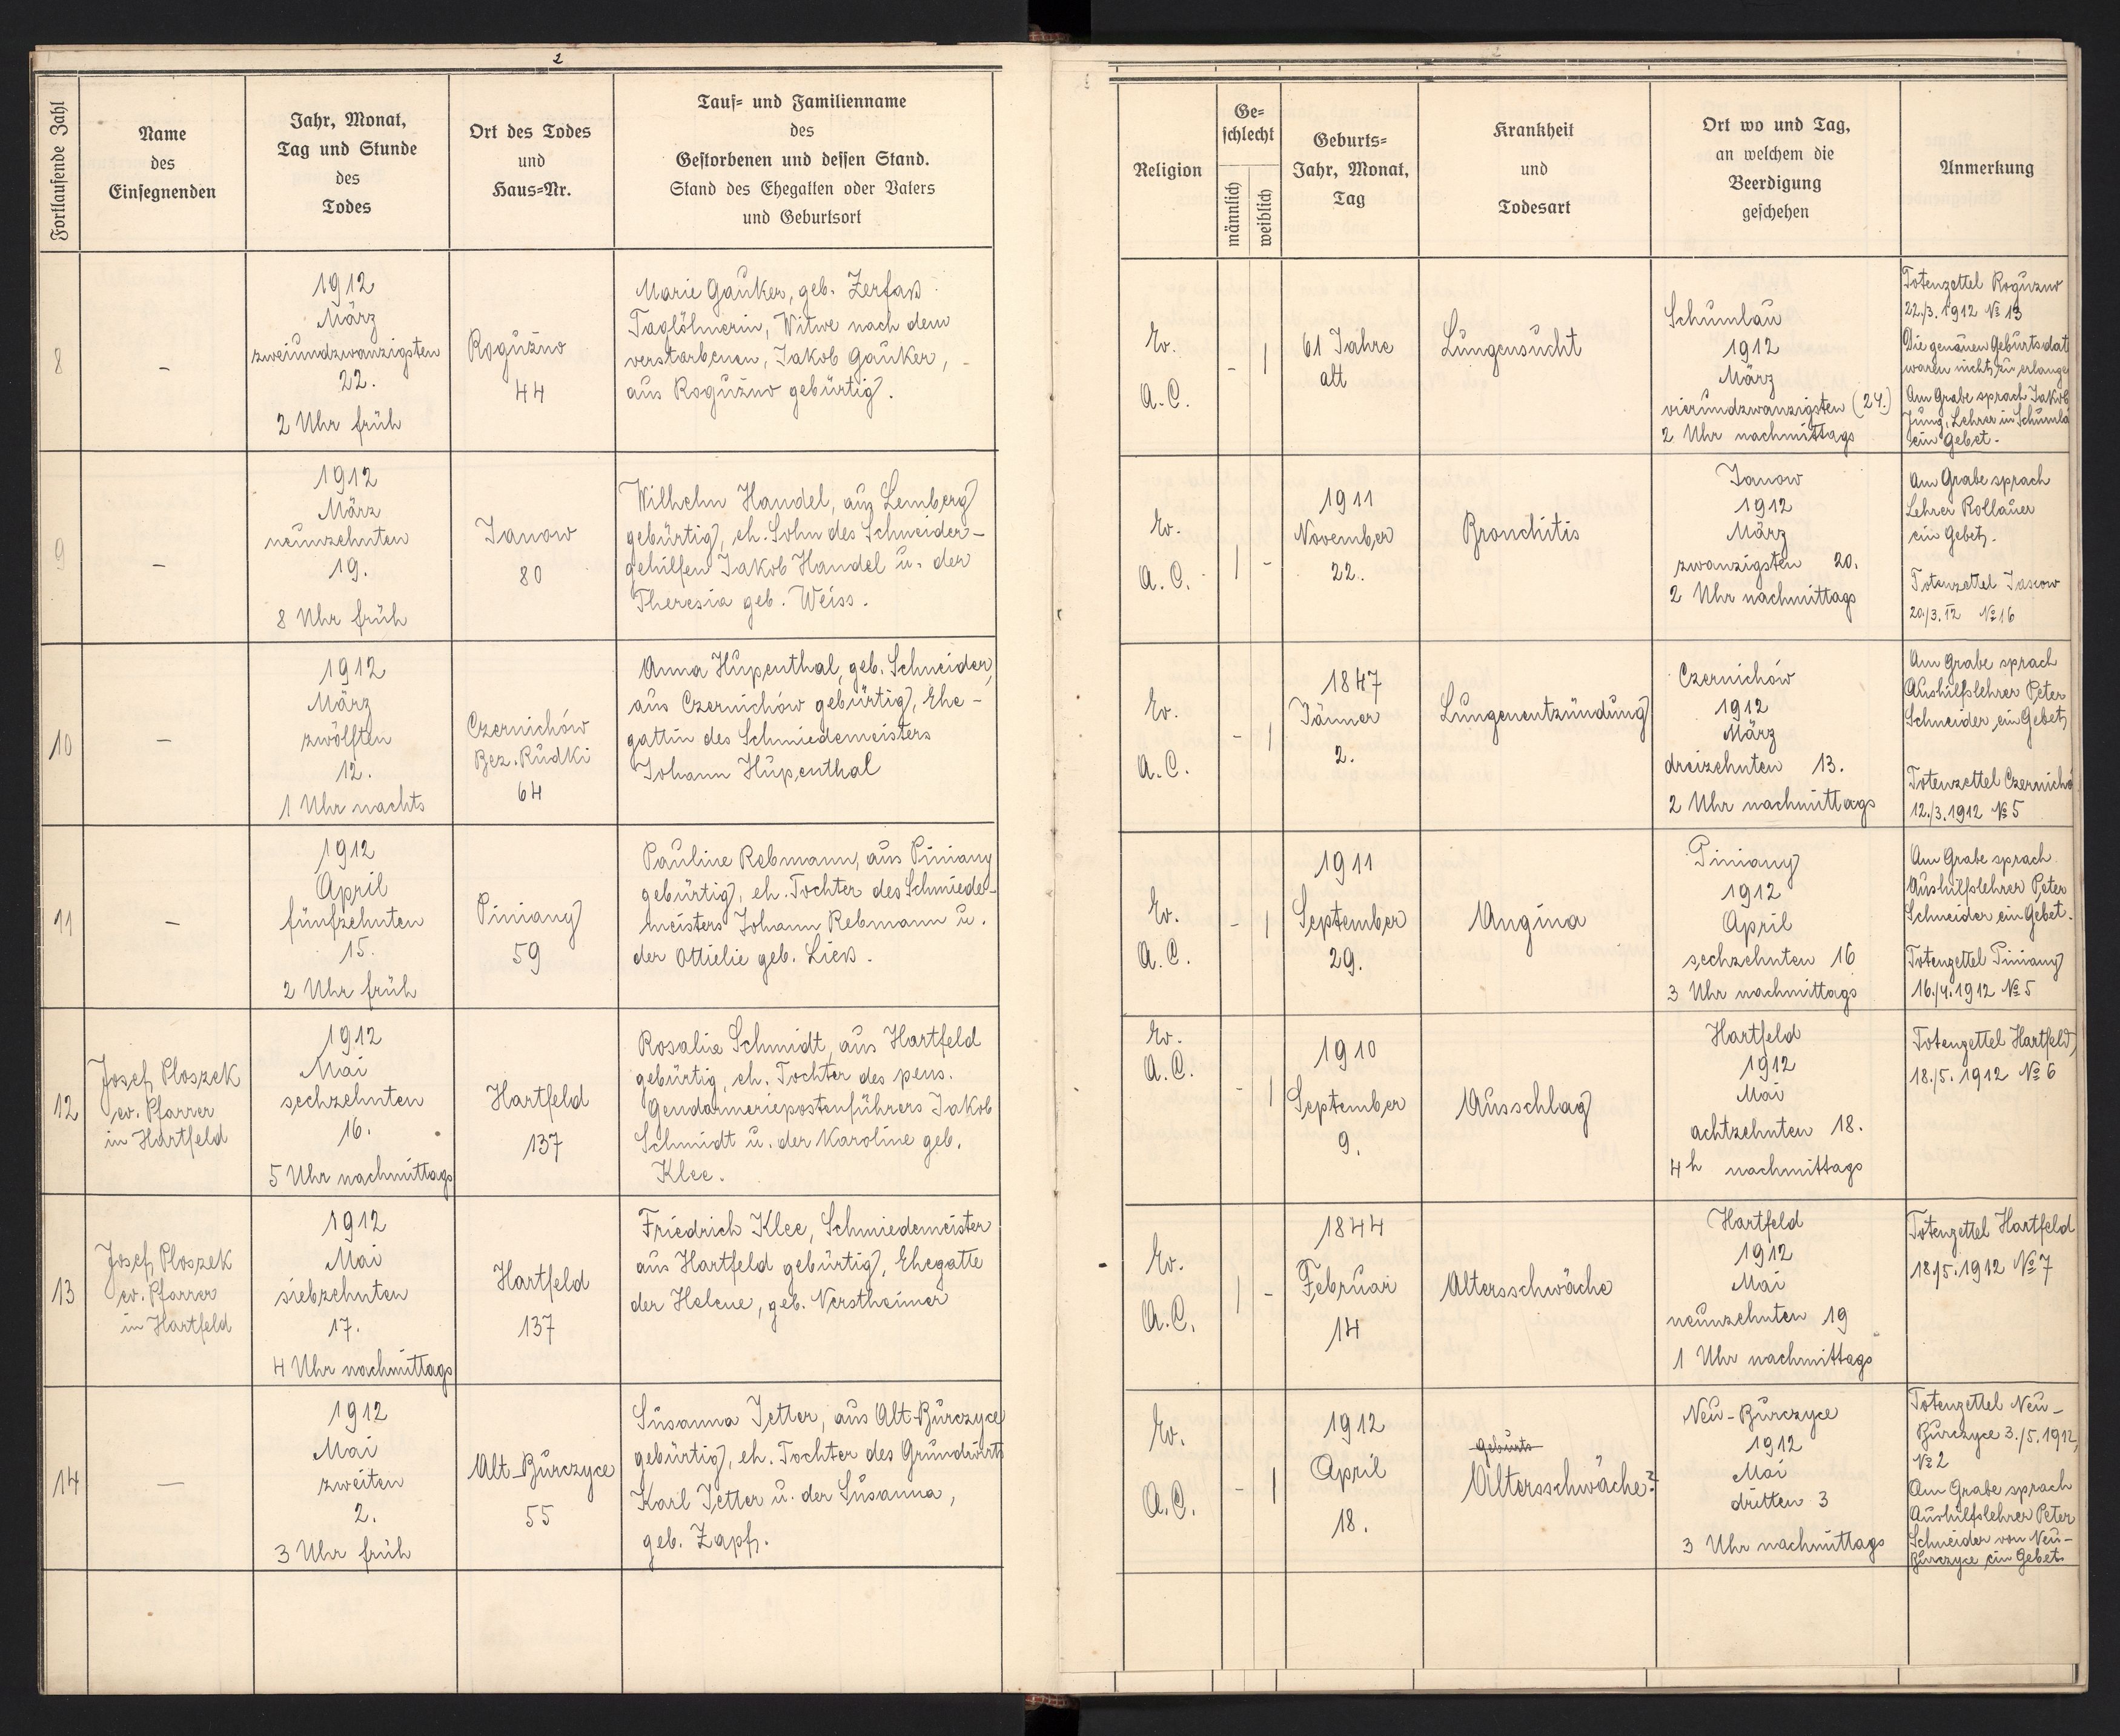 2
Fortlaufende Zahl
Name
des
Einsegnenden
Jahr, Monat,
Tag und Stunde
des
Todes
Ort des Todes
und
Haus=Nr.
Tauf= und Familienname
des
Gestorbenen und dessen Stand.
Stand des Ehegatten oder Vaters
und Geburtsort
Religion
Ge=
schlecht
männlich
weiblich
Geburts=
Jahr, Monat,
Tag
Krankheit
und
Todesart
Ort wo und Tag,
an welchem die
Beerdigung
geschehen
Anmerkung
8
–
1912
März
zweiundzwanzigsten
22.
2 Uhr früh
Roguźno
44
Marie Gauker, geb. Zerfaß
Taglöhnerin, Witwe nach dem
verstorbenen, Jakob Gauker,
aus Roguźno gebürtig.
Ev.
A.C.
–
1
61 Jahre
alt
Lungensucht
Schumlau
1912
März
vierundzwanzigsten (24.)
2 Uhr nachmittags
Totenzettel Roguzno
22./3. 1912 № 13
Die genauen Geburtsdat
waren nicht zu erlange
Am Grabe sprach Jakob
Jung, Lehrer in Schumla
ein Gebet.
9
–
1912
März
neunzehnten
19.
8 Uhr früh
Janow
80
Wilhelm Handel, aus Lemberg
gebürtig, eh. Sohn des Schneider-
gehilfen Jakob Handel u. der
Theresia geb. Weiss.
Ev.
A.C.
1
–
1911
November
22.
Bronchitis
Janow
1912
März
zwanzigsten 20.
2 Uhr nachmittags
Am Grabe sprach
Lehrer Rollauer
ein Gebet.
Totenzettel Janow
20./3. 12 № 16
10
–
1912
März
zwölften
12.
1 Uhr nachts
Czernichów
Bez. Rudki
64
Anna Hupenthal, geb. Schneider,
aus Czernichów gebürtig, Ehe-
gattin des Schmiedemeisters
Johann Hupenthal
Ev.
A.C.
–
1
1847
Jänner
2.
Lungenentzündung
Czernichów
1912
März
dreizehnten 13.
2 Uhr nachmittags
Am Grabe sprach
Aushilfslehrer Peter
Schneider ein Gebet
Totenzettel Czernichó
12./3. 1912 № 5
11
–
1912
April
fünfzehnten
15.
2 Uhr früh
Piniany
59
Pauline Rebmann, aus Piniany
gebürtig, eh. Tochter des Schmiede-
meisters Johann Rebmann u.
der Ottielie geb. Ließ.
Ev.
A.C.
–
1
1911
September
29.
Angina
Piniany
1912
April
sechzehnten 16
3 Uhr nachmittags
Am Grabe sprach
Aushilfslehrer Peter
Schneider ein Gebet.
Totenzettel Piniany
16./4. 1912 № 5
12
Josef Ploszek
ev. Pfarrer
in Hartfeld
1912
Mai
sechzehnten
16.
5 Uhr nachmittags
Hartfeld
137
Rosalia Schmidt, aus Hartfeld
gebürtig, eh. Tochter des pens.
Gendarmeriepostenführers Jakob
Schmidt u. der Karoline geb.
Klee.
Ev.
A.C.
–
1
1910
September
9.
Ausschlag
Hartfeld
1912
Mai
achtzehnten 18.
4h nachmittags
Totenzettel Hartfeld,
18./5. 1912 № 6
13
Josef Ploszek
ev. Pfarrer
in Hartfeld
1912
Mai
siebzehnten
17.
4 Uhr nachmittags
Hartfeld
137
Friedrich Klee, Schmiedemeister
aus Hartfeld gebürtig, Ehegatte
der Helene, geb. Verstheimer
Ev.
A.C.
1
–
1844
Februar
14
Altersschwäche
Hartfeld
1912
Mai
neunzehnten 19
1 Uhr nachmittags
Totenzettel Hartfeld
18./5. 1912 № 7
14
—
1912
Mai
zweiten
2.
3 Uhr früh
Alt-Burczyce
55
Susanna Jetter, aus Alt-Burczyce
gebürtig, eh. Tochter des Grundwirts
Karl Jetter u. der Susanna,
geb. Zapf.
Ev.
A.C.
–
1
1912
April
18.
Geburts
Altersschwäche?
Neu-Burczyce
1912
Mai
dritten 3
3 Uhr nachmittags
Totenzettel Neu-
Burczyce 3./5. 1912,
№ 2
Am Grabe sprach
Aushilfslehrer Peter
Schneider von Neu-
Burczyce ein Gebet